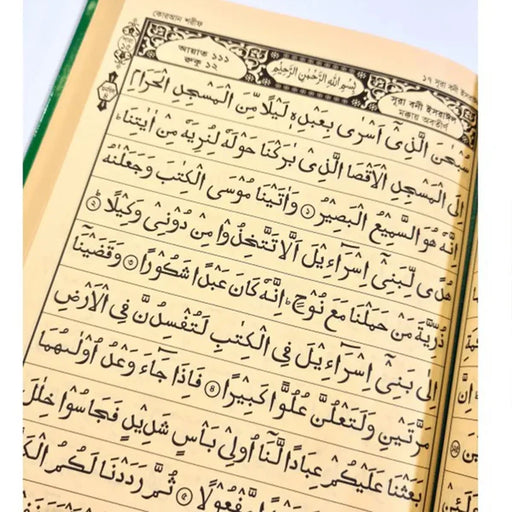 কোরআন শরীফ
১৭ সূরা বনী ইসরাঈল
আয়াত ১১১
রুকু ১২
بِسْمِ اللّٰهِ الرَّحْمٰنِ الرَّحِيْمِ
সূরা বনী ইসরাঈল
মক্কায় অবতীর্ণ
سُبْحٰنَ الَّذِيْٓ اَسْرٰى بِعَبْدِهٖ لَيْلًا مِّنَ الْمَسْجِدِ الْحَرَامِ
اِلَى الْمَسْجِدِ الْاَقْصَا الَّذِيْ بٰرَكْنَا حَوْلَهٗ لِنُرِيَهٗ مِنْ اٰيٰتِنَا ؕ
اِنَّهٗ هُوَ السَّمِيْعُ الْبَصِيْرُ ۝١ وَاٰتَيْنَا مُوْسَى الْكِتٰبَ وَجَعَلْنٰهُ
هُدًى لِّبَنِيْٓ اِسْرَآءِيْلَ اَلَّا تَتَّخِذُوْا مِنْ دُوْنِيْ وَكِيْلًا ۝٢
ذُرِّيَّةَ مَنْ حَمَلْنَا مَعَ نُوْحٍ ؕ اِنَّهٗ كَانَ عَبْدًا شَكُوْرًا ۝٣ وَقَضَيْنَآ
اِلٰى بَنِيْٓ اِسْرَآءِيْلَ فِي الْكِتٰبِ لَتُفْسِدُنَّ فِي الْاَرْضِ
مَرَّتَيْنِ وَلَتَعْلُنَّ عُلُوًّا كَبِيْرًا ۝٤ فَاِذَا جَآءَ وَعْدُ اُوْلٰىهُمَا
بَعَثْنَا عَلَيْكُمْ عِبَادًا لَّنَآ اُولِيْ بَاْسٍ شَدِيْدٍ فَجَاسُوْا خِلٰلَ
مَّفْعُوْلًا ۝٥ ثُمَّ رَدَدْنَا لَكُمُ